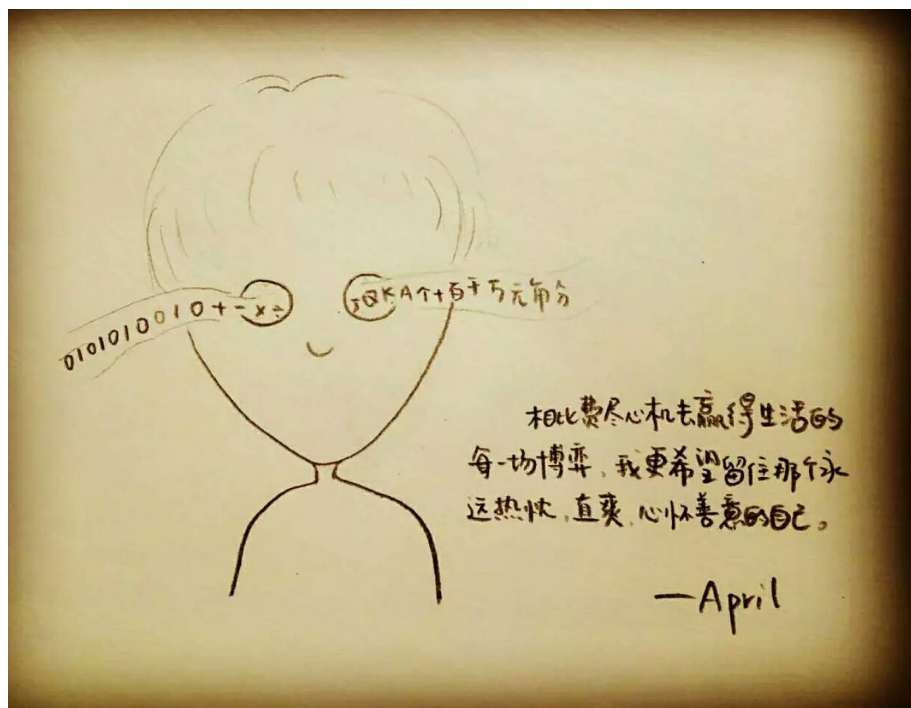 0101010010+-×÷
JQKA个十百千万元角分
相比费尽心机去赢得生活的
每一场博弈,我更希望留住那个永
远热忱,直爽,心怀善意的自己。
—April